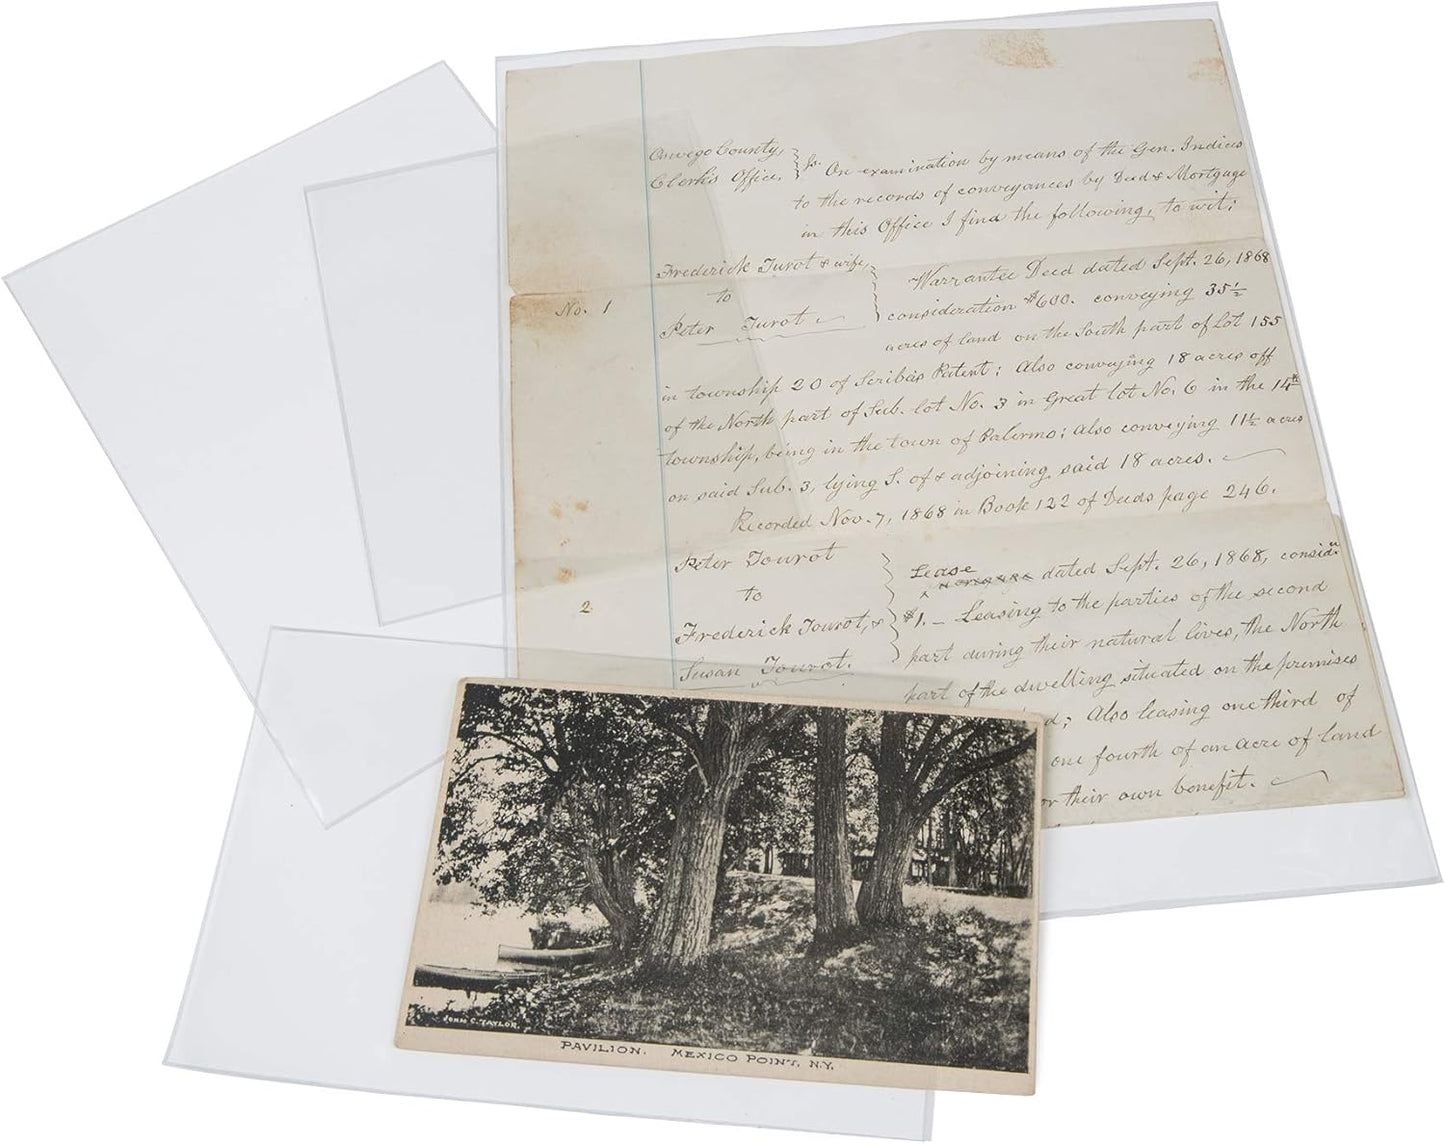 Oswego County,
Clerk's Office,
ss. On examination by means of the Gen. Indices
to the records of conveyances by Deed & Mortgage
in this Office I find the following, to wit;
No. 1
Frederick Turot & wife,
to
Peter Turot
Warrantee Deed dated Sept. 26, 1868
consideration $600. conveying 35½
acres of land on the South part of Lot 155
in township 20 of Scribas Patent; Also conveying 18 acres off
of the North part of Sub. lot No. 3 in Great lot No. 6 in the 14th
township, being in the town of Palermo; Also conveying 11½ acres
on said Sub. 3, lying S. of & adjoining said 18 acres.
Recorded Nov. 7, 1868 in Book 122 of Deeds page 246.
2
Peter Tourot
to
Frederick Tourot, &
Susan Tourot.
Lease
dated Sept. 26, 1868, consid.n
$1. – Leasing to the parties of the second
part during their natural lives, the North
part of the dwelling situated on the premises
; Also leasing one third of
one fourth of an acre of land
or their own benefit.
JOHN C. TAYLOR.
PAVILION. MEXICO POINT, N.Y.